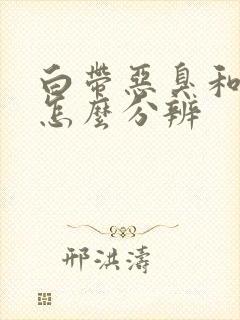 白帶惡臭和
怎麼分辨
邢洪濤